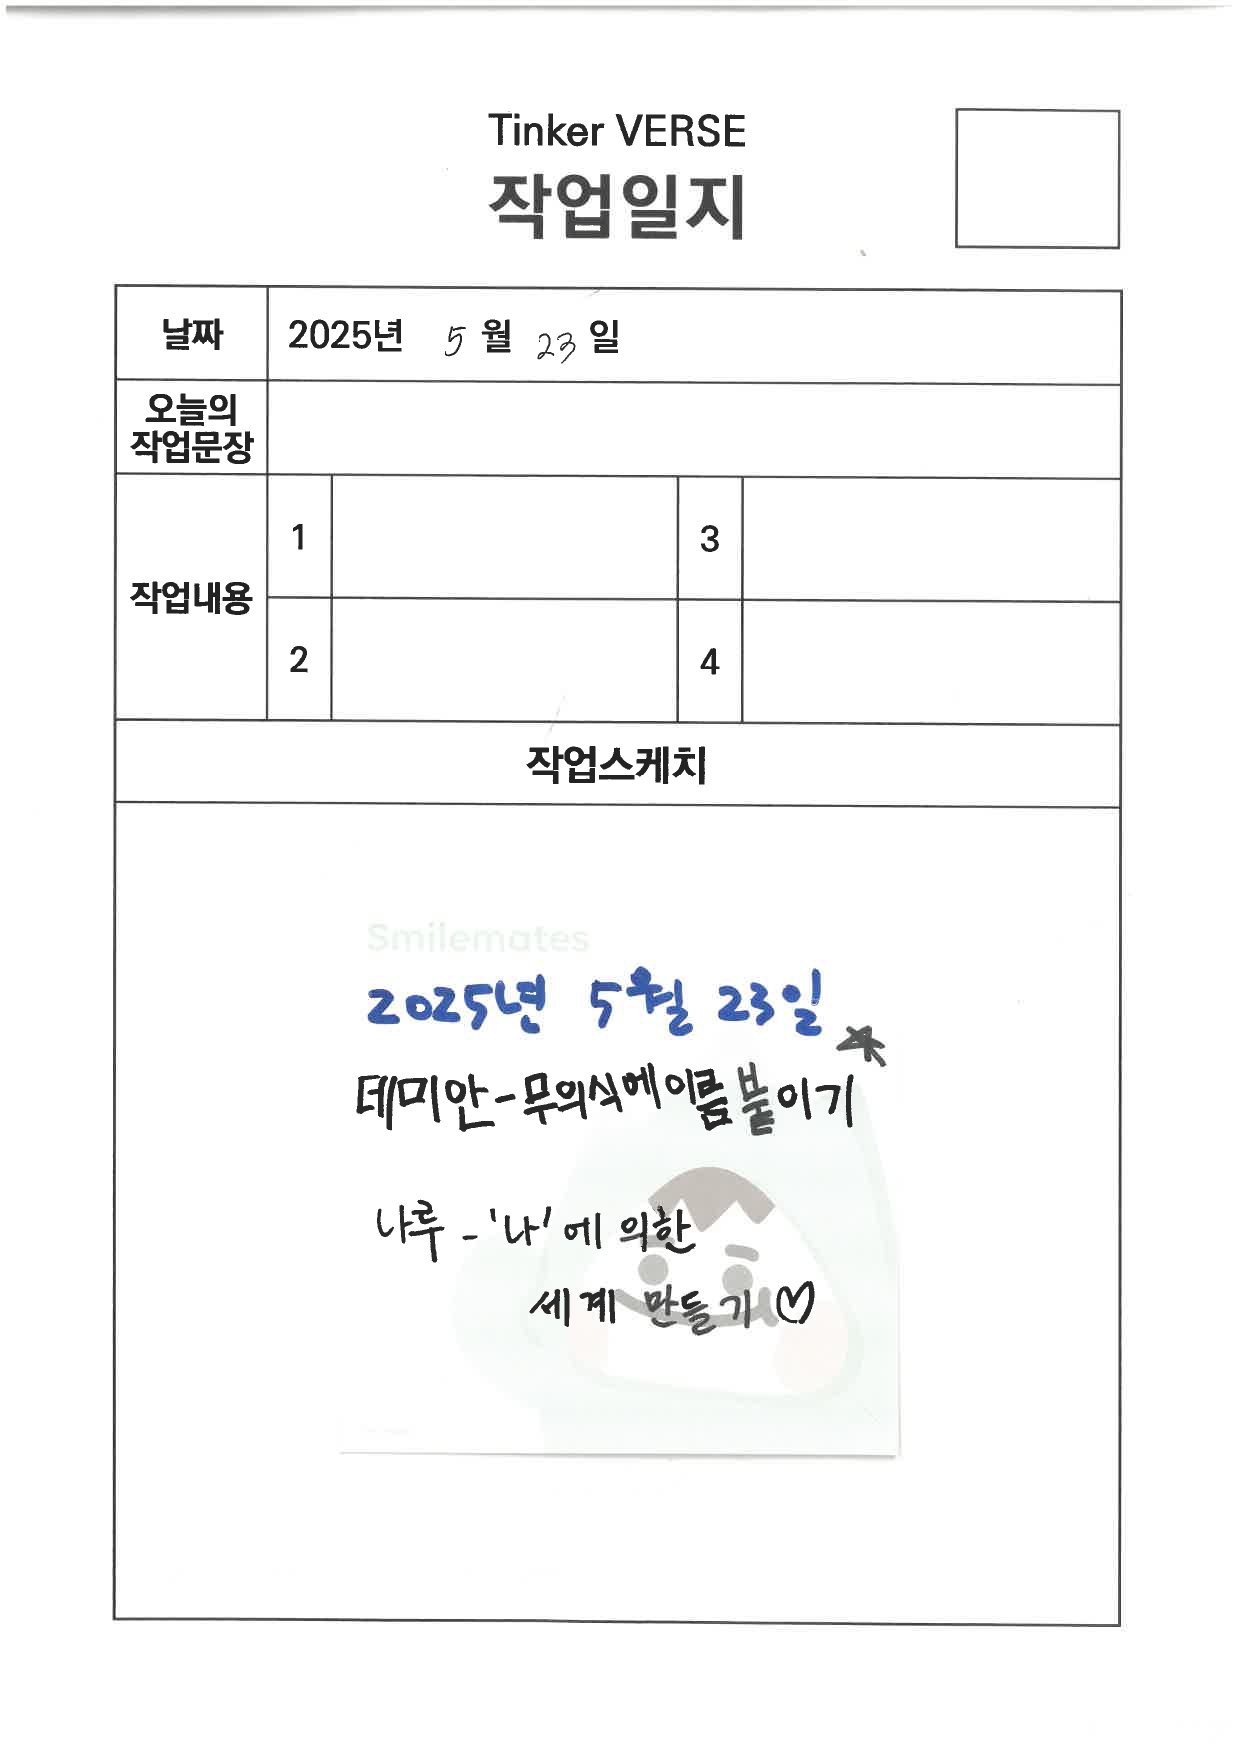 Tinker VERSE
작업일지
날짜 2025년 5월 23일
오늘의
작업문장
작업내용
1
3
2
4
작업스케치
Smilemates
2025년 5월 23일
데미안-무의식에 이름 붙이기
나루-'나'에 의한
세계 만들기♡